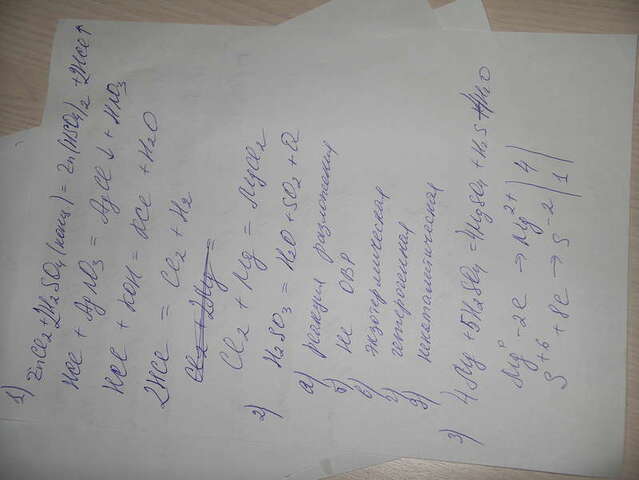 1) ZnCl2 + 2H2SO4 (конц) = Zn(HSO4)2 + 2HCl↑
HCl + AgNO3 = AgCl↓ + HNO3
HCl + KOH = KCl + H2O
2HCl = Cl2 + H2
Cl2 + 2Mg =
Cl2 + Mg = MgCl2
2) H2SO3 = H2O + SO2 + Q
а) реакция разложения
б) не ОВР
в) экзотермическая
г) гетерогенная
д) некаталитическая
3) 4Mg + 5H2SO4 = 4MgSO4 + H2S + 4H2O
Mg0 - 2e → Mg2+ | 4
S+6 + 8e → S-2 | 1 |